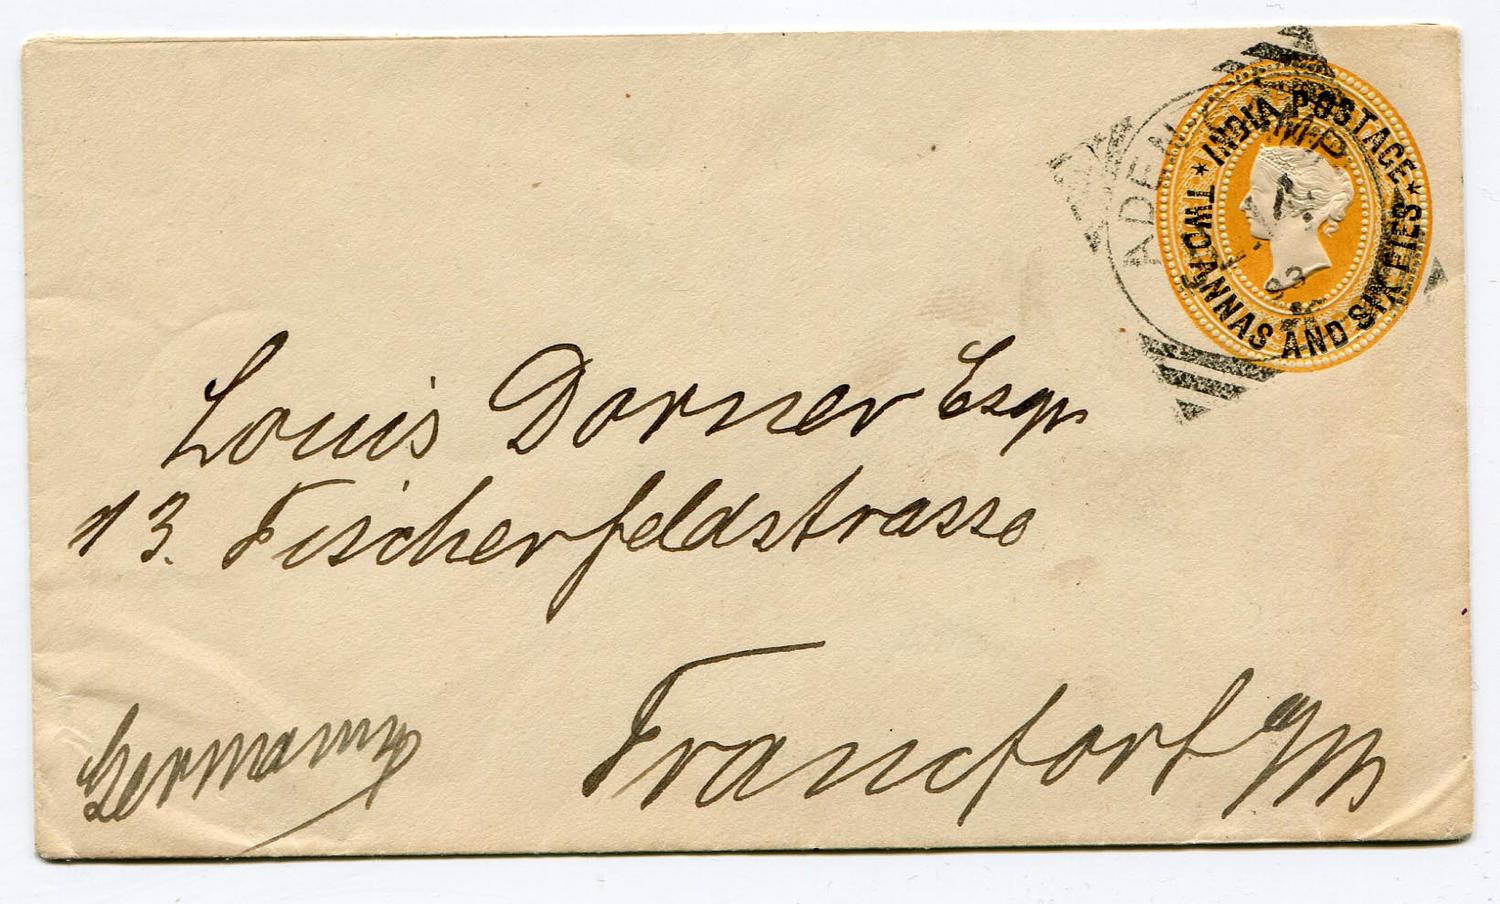 INDIA POSTAGE
TWO ANNAS AND SIX PIES
ADEN
93
Louis Dorner Esqr
13. Fischerfeldstrasse
Francfort a/m
Germany